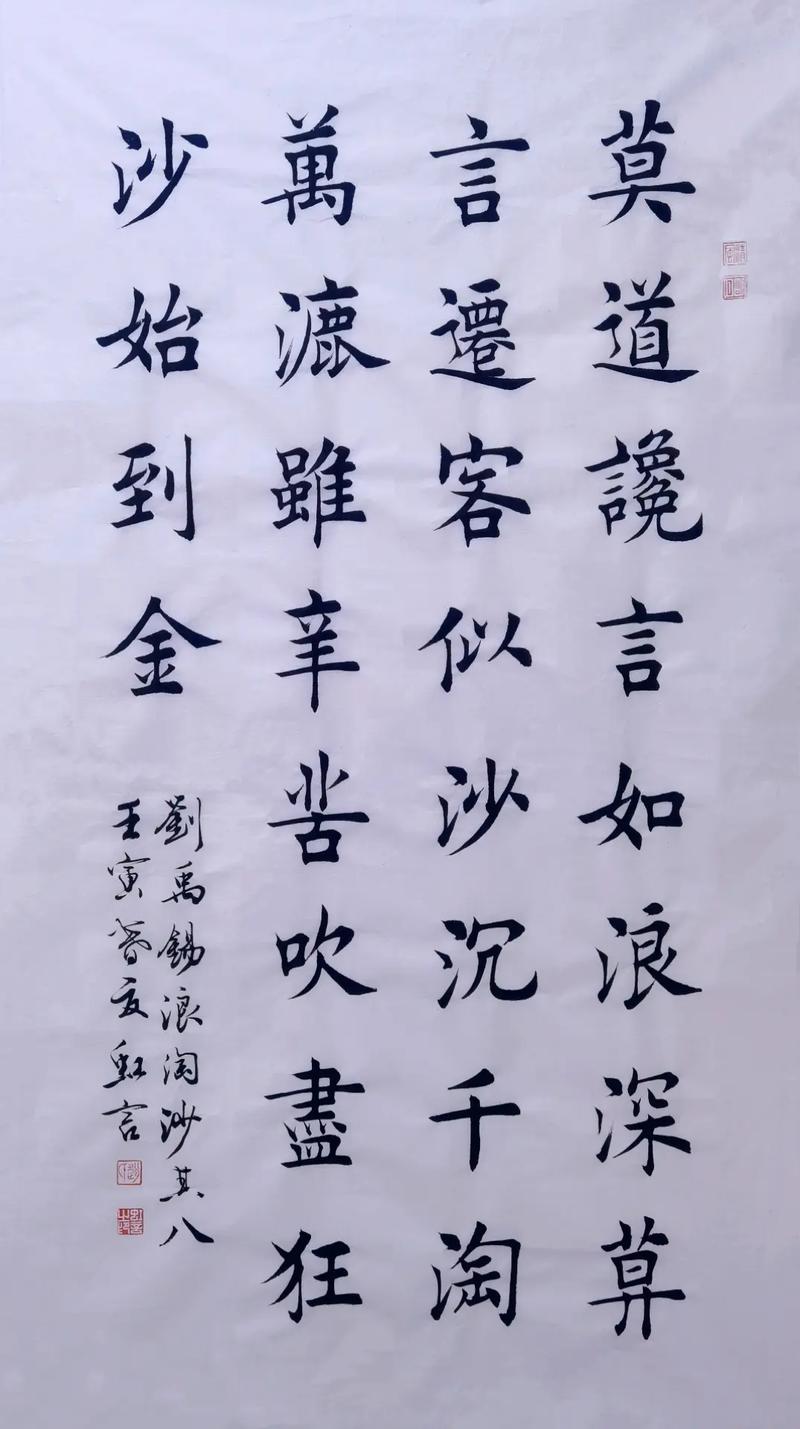 莫道讒言如浪深莫
言遷客似沙沉千淘
萬漉雖辛苦吹盡狂
沙始到金
劉禹錫浪淘沙其八
壬寅言